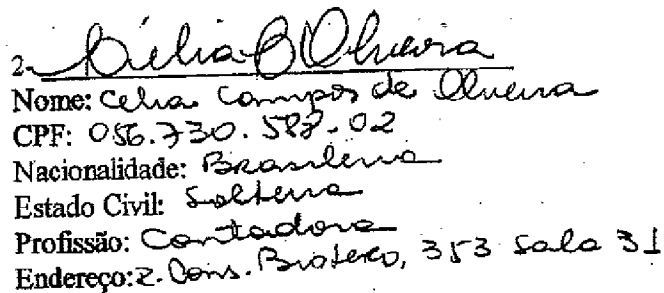 2- Célia B Oliveira
Nome: Celia Campos de Oliveira
CPF: 056.730.587-02
Nacionalidade: Brasileira
Estado Civil: Solteira
Profissão: Contadora
Endereço: R. Cons. Brotero, 353 Sala 31